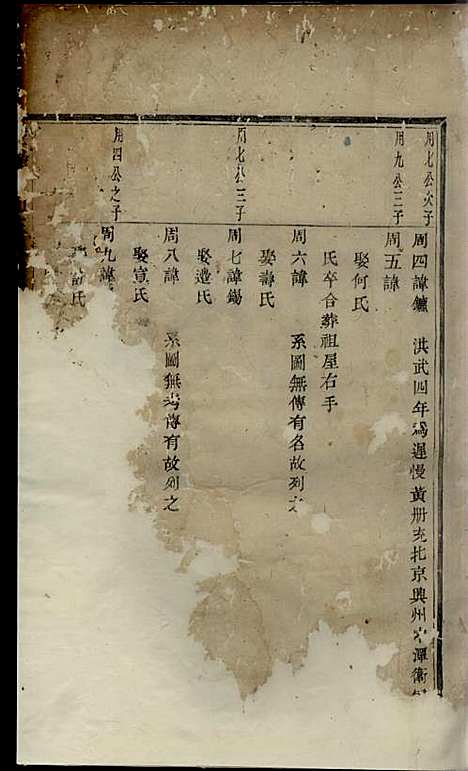 用七公次子
周四諱鑣 洪武四年為遲慢黃册充北京興州中潭衛
用九公三子
周五諱
娶何氏
氏卒合葬祖屋右手
周六諱 系圖無傳有名故列之
娶壽氏
用七公三子
周七諱錫
娶邉氏
周八諱 系圖無考傳有故列之
娶宣氏
用四公之子
周九諱
氏